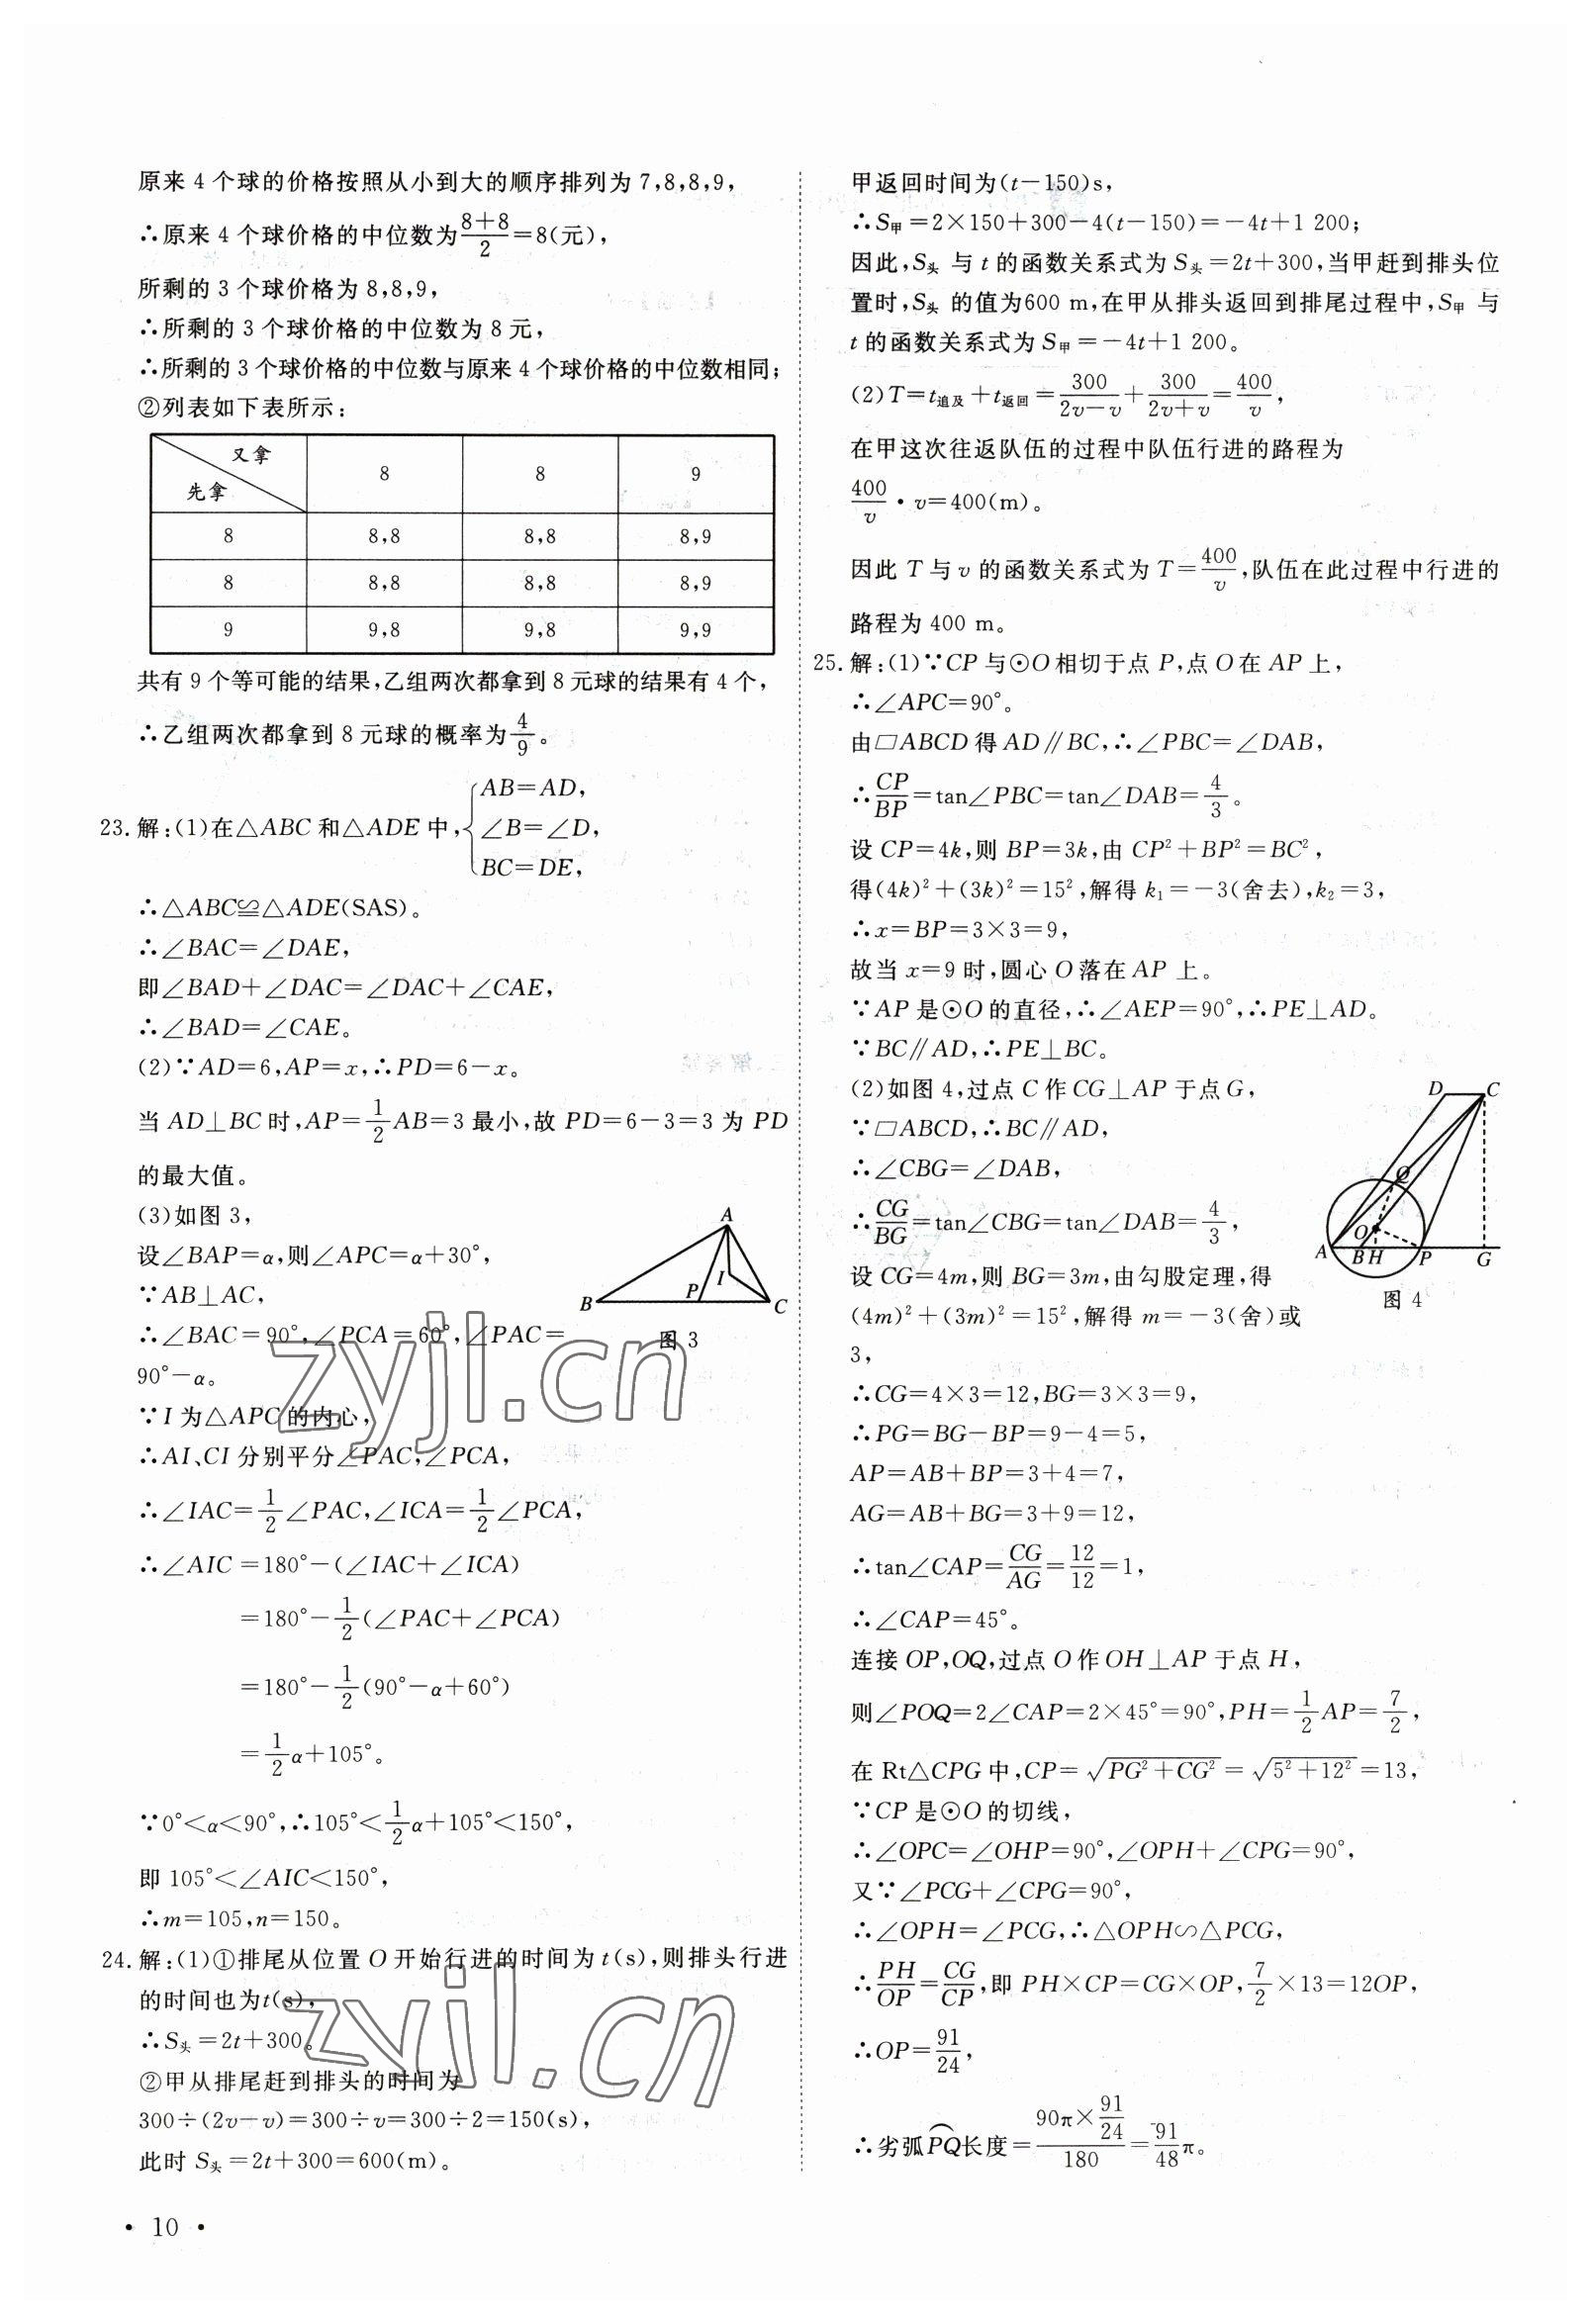 原来 4 个球的价格按照从小到大的顺序排列为 7,8,8,9,
∴原来 4 个球价格的中位数为(8+8)/2=8(元),
所剩的 3 个球价格为 8,8,9,
∴所剩的 3 个球价格的中位数为 8 元,
∴所剩的 3 个球价格的中位数与原来 4 个球价格的中位数相同;
②列表如下表所示:
又拿
先拿
8 8 9
8 8,8 8,8 8,9
8 8,8 8,8 8,9
9 9,8 9,8 9,9
共有 9 个等可能的结果,乙组两次都拿到 8 元球的结果有 4 个,
∴乙组两次都拿到 8 元球的概率为4/9。
23. 解:(1)在△ABC 和△ADE 中,{AB=AD,
∠B=∠D,
BC=DE,
∴△ABC≌△ADE(SAS)。
∴∠BAC=∠DAE,
即∠BAD+∠DAC=∠DAC+∠CAE,
∴∠BAD=∠CAE。
(2)∵AD=6,AP=x,∴PD=6-x。
当 AD⊥BC 时,AP=1/2 AB=3 最小,故 PD=6-3=3 为 PD
的最大值。
(3)如图 3,
设∠BAP=α,则∠APC=α+30°,
∵AB⊥AC,
∴∠BAC=90°,∠PCA=60°,∠PAC=
90°-α。
∵I 为△APC 的内心,
∴AI、CI 分别平分∠PAC,∠PCA,
∴∠IAC=1/2∠PAC,∠ICA=1/2∠PCA,
∴∠AIC=180°-(∠IAC+∠ICA)
=180°-1/2(∠PAC+∠PCA)
=180°-1/2(90°-α+60°)
=1/2α+105°。
∵0°<α<90°,∴105°<1/2α+105°<150°,
即 105°<∠AIC<150°,
∴m=105,n=150。
A
B
P
I
C
图 3
24. 解:(1)①排尾从位置 O 开始行进的时间为 t(s),则排头行进
的时间也为t(s),
∴S头=2t+300。
②甲从排尾赶到排头的时间为
300÷(2v-v)=300÷v=300÷2=150(s),
此时 S头=2t+300=600(m)。
甲返回时间为(t-150)s,
∴S甲=2×150+300-4(t-150)=-4t+1 200;
因此,S头 与 t 的函数关系式为 S头=2t+300,当甲赶到排头位
置时,S头 的值为600 m,在甲从排头返回到排尾过程中,S甲 与
t 的函数关系式为 S甲=-4t+1 200。
(2)T=t追及+t返回=300/(2v-v)+300/(2v+v)=400/v,
在甲这次往返队伍的过程中队伍行进的路程为
400/v·v=400(m)。
因此 T 与 v 的函数关系式为 T=400/v,队伍在此过程中行进的
路程为 400 m。
25. 解:(1)∵CP 与⊙O 相切于点 P,点 O 在 AP 上,
∴∠APC=90°。
由▱ABCD 得 AD∥BC,∴∠PBC=∠DAB,
∴CP/BP=tan∠PBC=tan∠DAB=4/3。
设 CP=4k,则 BP=3k,由 CP²+BP²=BC²,
得(4k)²+(3k)²=15²,解得 k₁=-3(舍去),k₂=3,
∴x=BP=3×3=9,
故当 x=9 时,圆心 O 落在 AP 上。
∵AP 是⊙O 的直径,∴∠AEP=90°,∴PE⊥AD。
∵BC∥AD,∴PE⊥BC。
(2)如图 4,过点 C 作 CG⊥AP 于点 G,
∵▱ABCD,∴BC∥AD,
∴∠CBG=∠DAB,
∴CG/BG=tan∠CBG=tan∠DAB=4/3,
设 CG=4m,则 BG=3m,由勾股定理,得
(4m)²+(3m)²=15²,解得 m=-3(舍)或
3,
∴CG=4×3=12,BG=3×3=9,
∴PG=BG-BP=9-4=5,
AP=AB+BP=3+4=7,
AG=AB+BG=3+9=12,
∴tan∠CAP=CG/AG=12/12=1,
∴∠CAP=45°。
D
C
Q
O
A
B
H
P
G
图 4
连接 OP,OQ,过点 O 作 OH⊥AP 于点 H,
则∠POQ=2∠CAP=2×45°=90°,PH=1/2 AP=7/2,
在 Rt△CPG 中,CP=√(PG²+CG²)=√(5²+12²)=13,
∵CP 是⊙O 的切线,
∴∠OPC=∠OHP=90°,∠OPH+∠CPG=90°,
又∵∠PCG+∠CPG=90°,
∴∠OPH=∠PCG,∴△OPH∽△PCG,
∴PH/OP=CG/CP,即 PH×CP=CG×OP,7/2×13=12OP,
∴OP=91/24,
∴劣弧PQ长度=(90π×91/24)/180=91/48π。
• 10 •
zyjl.cn
zyjl.cn